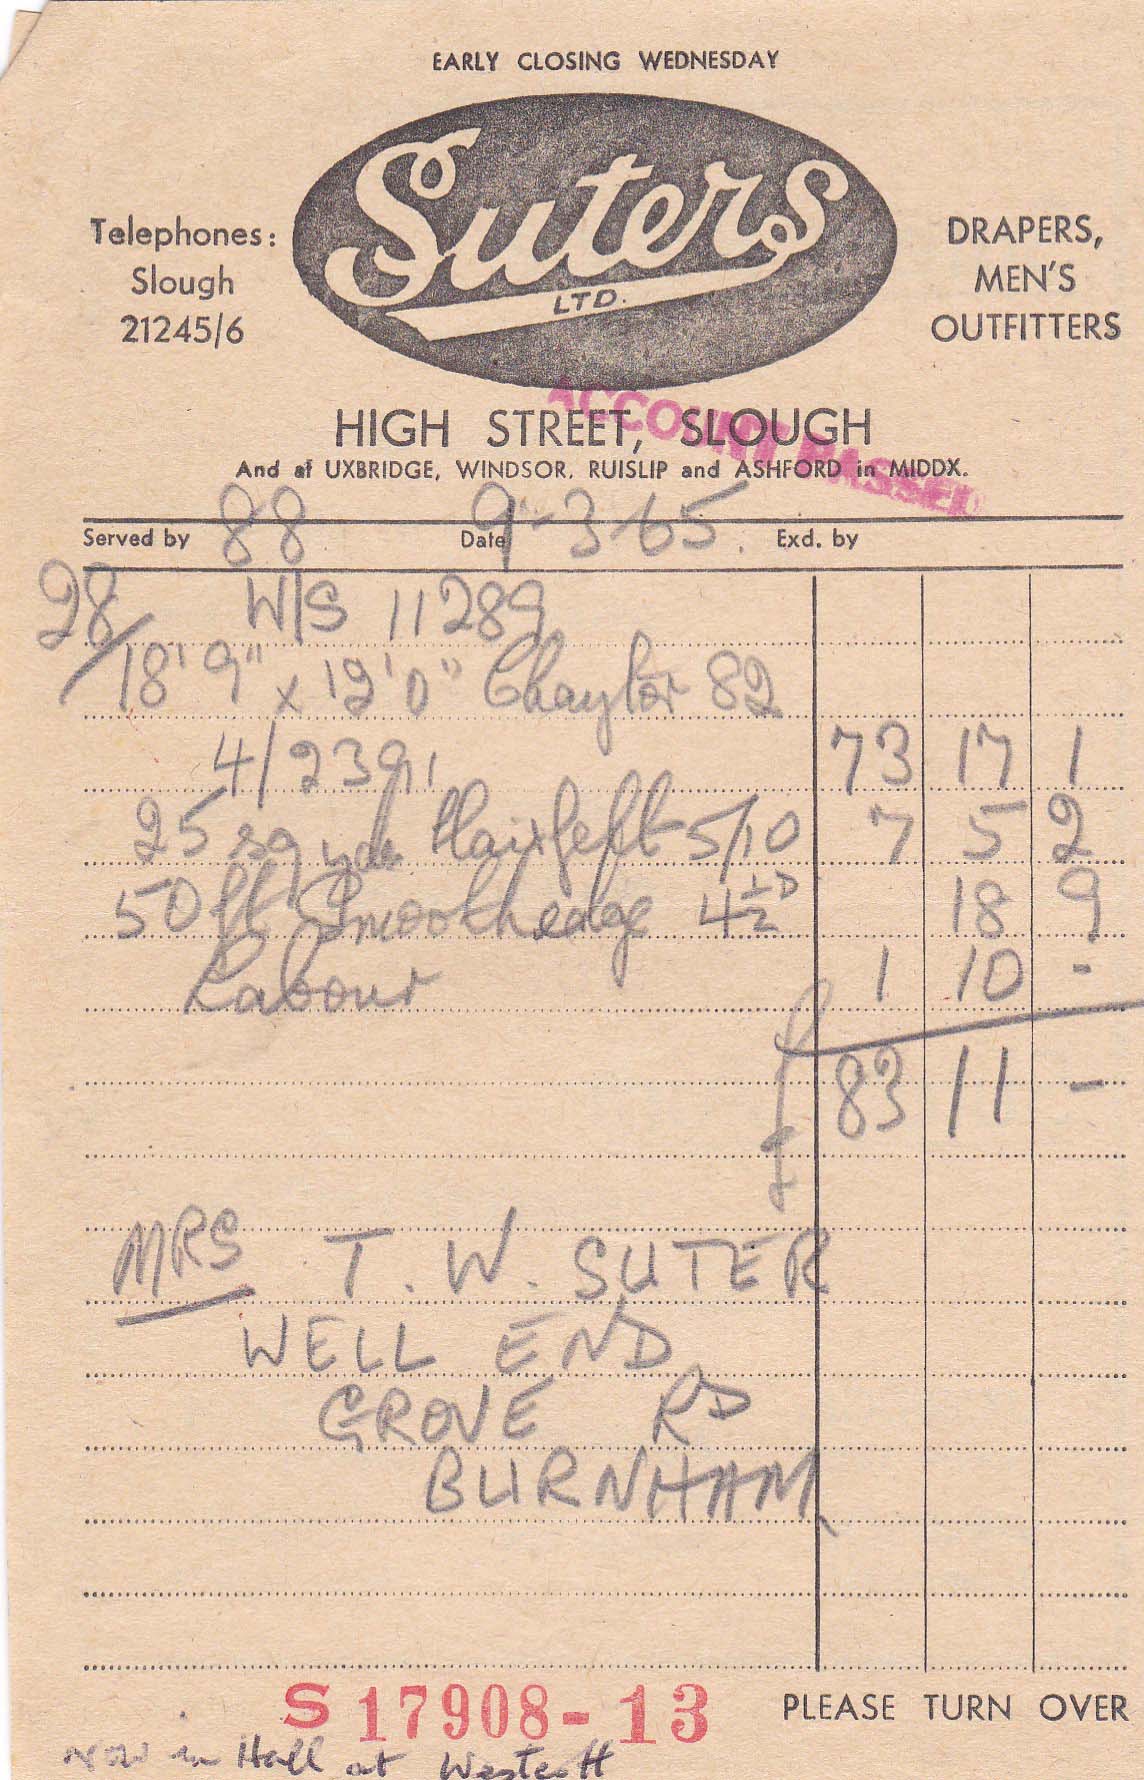 EARLY CLOSING WEDNESDAY
Suters
LTD.
Telephones:
Slough
21245/6
DRAPERS,
MEN'S
OUTFITTERS
ACCOUNT PASSED
HIGH STREET, SLOUGH
And at UXBRIDGE, WINDSOR, RUISLIP and ASHFORD in MIDDX.
Served by 88 Date 9-3-65. Exd. by
28/ W/S 11289
18'9" x 12'0" Chaytor 82
4/2391 73 17 1
25 sq yds Hairfelt 5/10 7 5 2
50 ft Smoothedge 4½D 18 9
Labour 1 10 -
£ 83 11 -
MRS T. W. SUTER
WELL END
GROVE RD
BURNHAM
S 17908-13
PLEASE TURN OVER
Now in Hall at Westcott